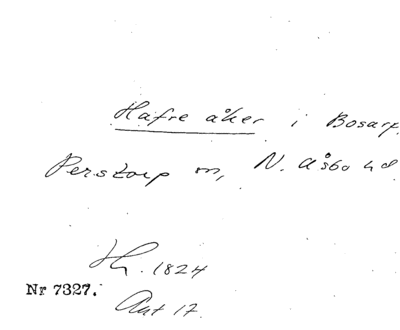 Hafre åker i Bosarp.
Perstorp sn, N. Åsbo hd
Hh. 1824
Nr 7327.
Ant 17.